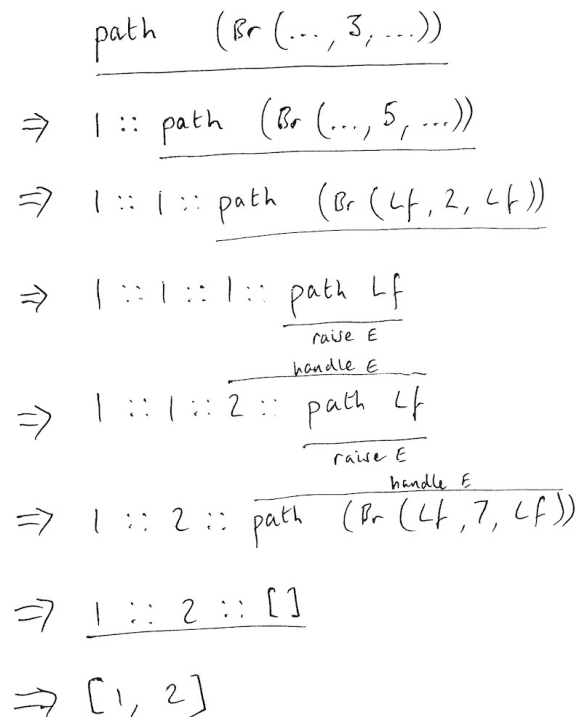 path (Br (..., 3, ...))
⇒ 1 :: path (Br (..., 5, ...))
⇒ 1 :: 1 :: path (Br (Lf, 2, Lf))
⇒ 1 :: 1 :: 1 :: path Lf
raise E
handle E
⇒ 1 :: 1 :: 2 :: path Lf
raise E
handle E
⇒ 1 :: 2 :: path (Br (Lf, 7, Lf))
⇒ 1 :: 2 :: []
⇒ [1, 2]